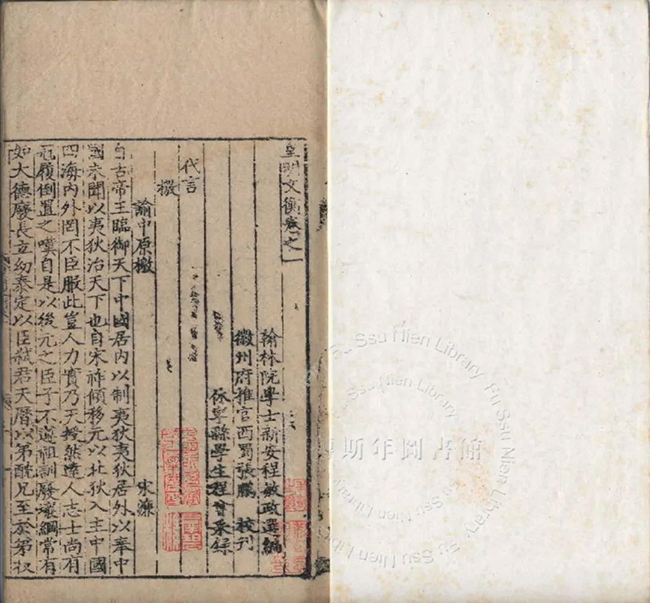 皇明文衡卷之一
翰林院學士新安程敏政選編
徽州府推官西蜀張鵬校刊
休寧縣學生程曾采錄
代言
檄
諭中原檄 宋濂
自古帝王臨御天下中國居內以制夷狄夷狄居外以奉中
國未聞以夷狄治天下也自宋祚傾移元以北狄入主中國
四海內外罔不臣服此豈人力實乃天授然達人志士尚有
冠履倒置之嘆自是以後元之臣子不遵祖訓廢壞綱常有
如大德廢長立幼泰定以臣弒君天曆以弟酖兄至於弟收
傅斯年圖書館
Fu Ssu Nien Library